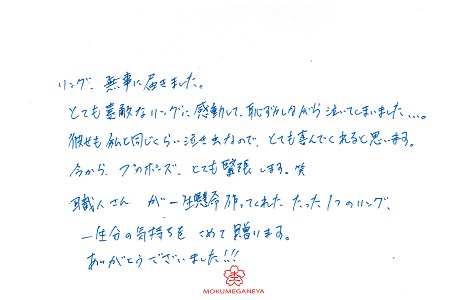 リング、無事に届きました。
とても素敵なリングに感動して、恥ずかしながら泣いてしまいました…。
彼女も私と同じくらい泣き虫なので、とても喜んでくれると思います。
今から、プロポーズ、とても緊張します。笑
職人さん が一生懸命作ってくれた たった1つのリング、
一生分の気持ちを こめて贈ります。
ありがとうございました!!!
MOKUMEGANEYA